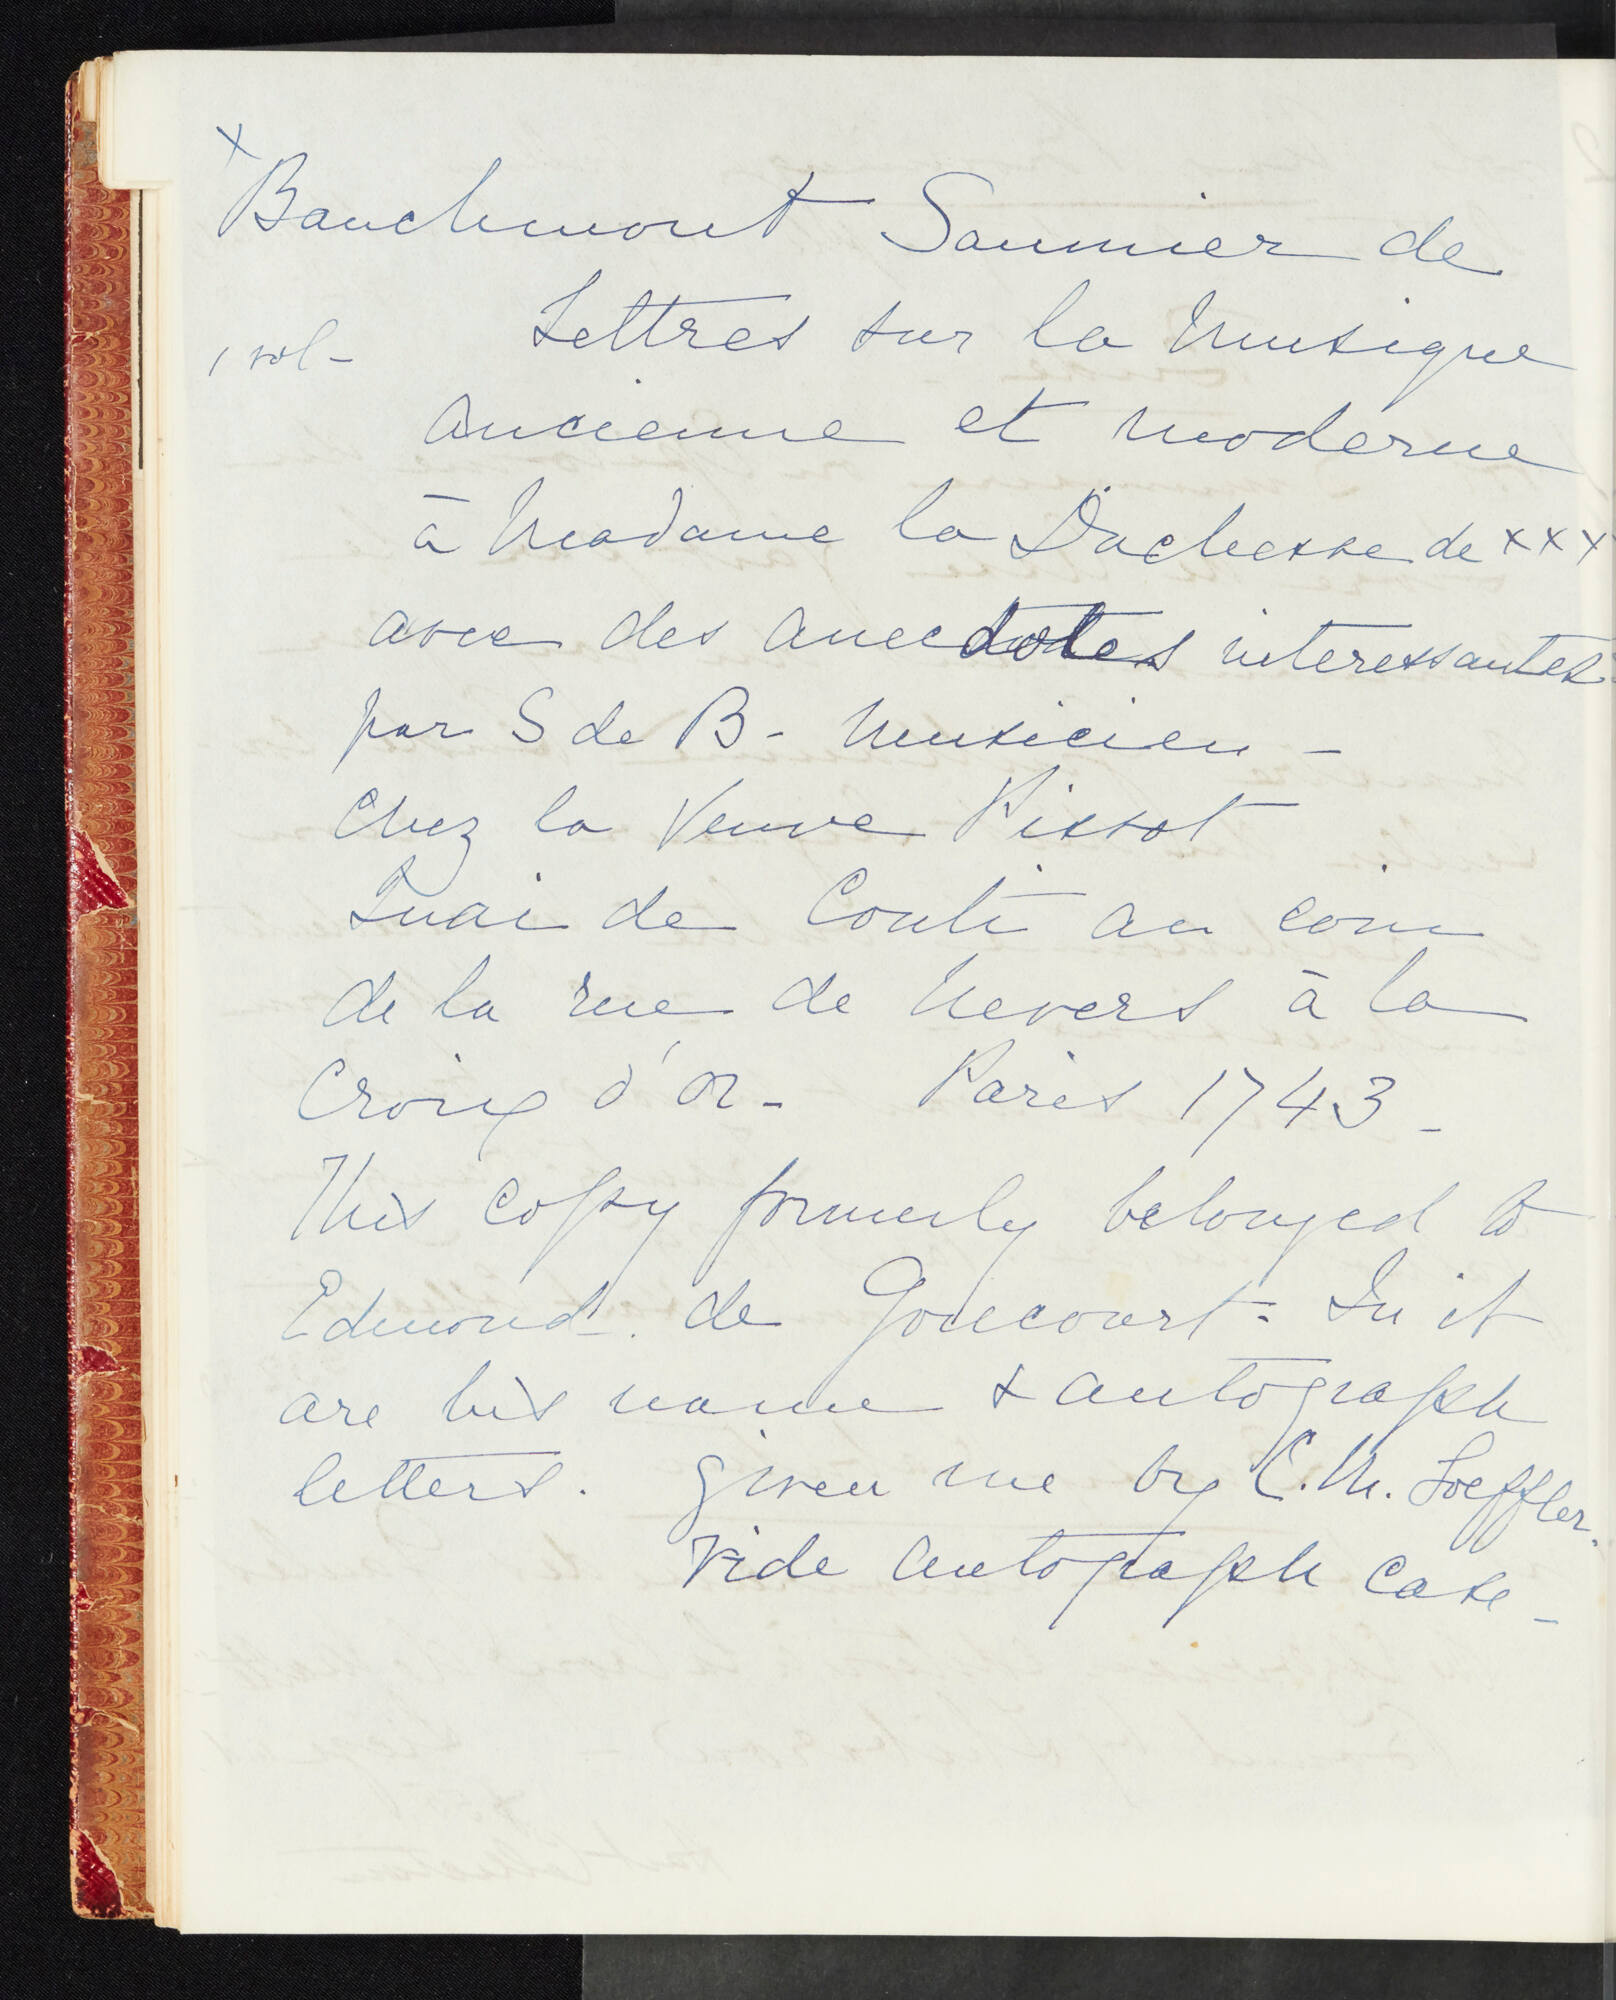 x
Bauchmont Saunier de
1 vol - Lettres sur la Musique
ancienne et moderne
à Madame la Duchesse de xxx
avec des anecdotes interessantes
par S de B - Musicien -
Chez la Veuve Pissot
Quai de Conti au coin
de la rue de Nevers à la
Croix d'or - Paris 1743 -
This copy formerly belonged to
Edmond de Goncourt - In it
are his name & autograph
letters. given me by C. M. Loeffler.
Vide autograph case -